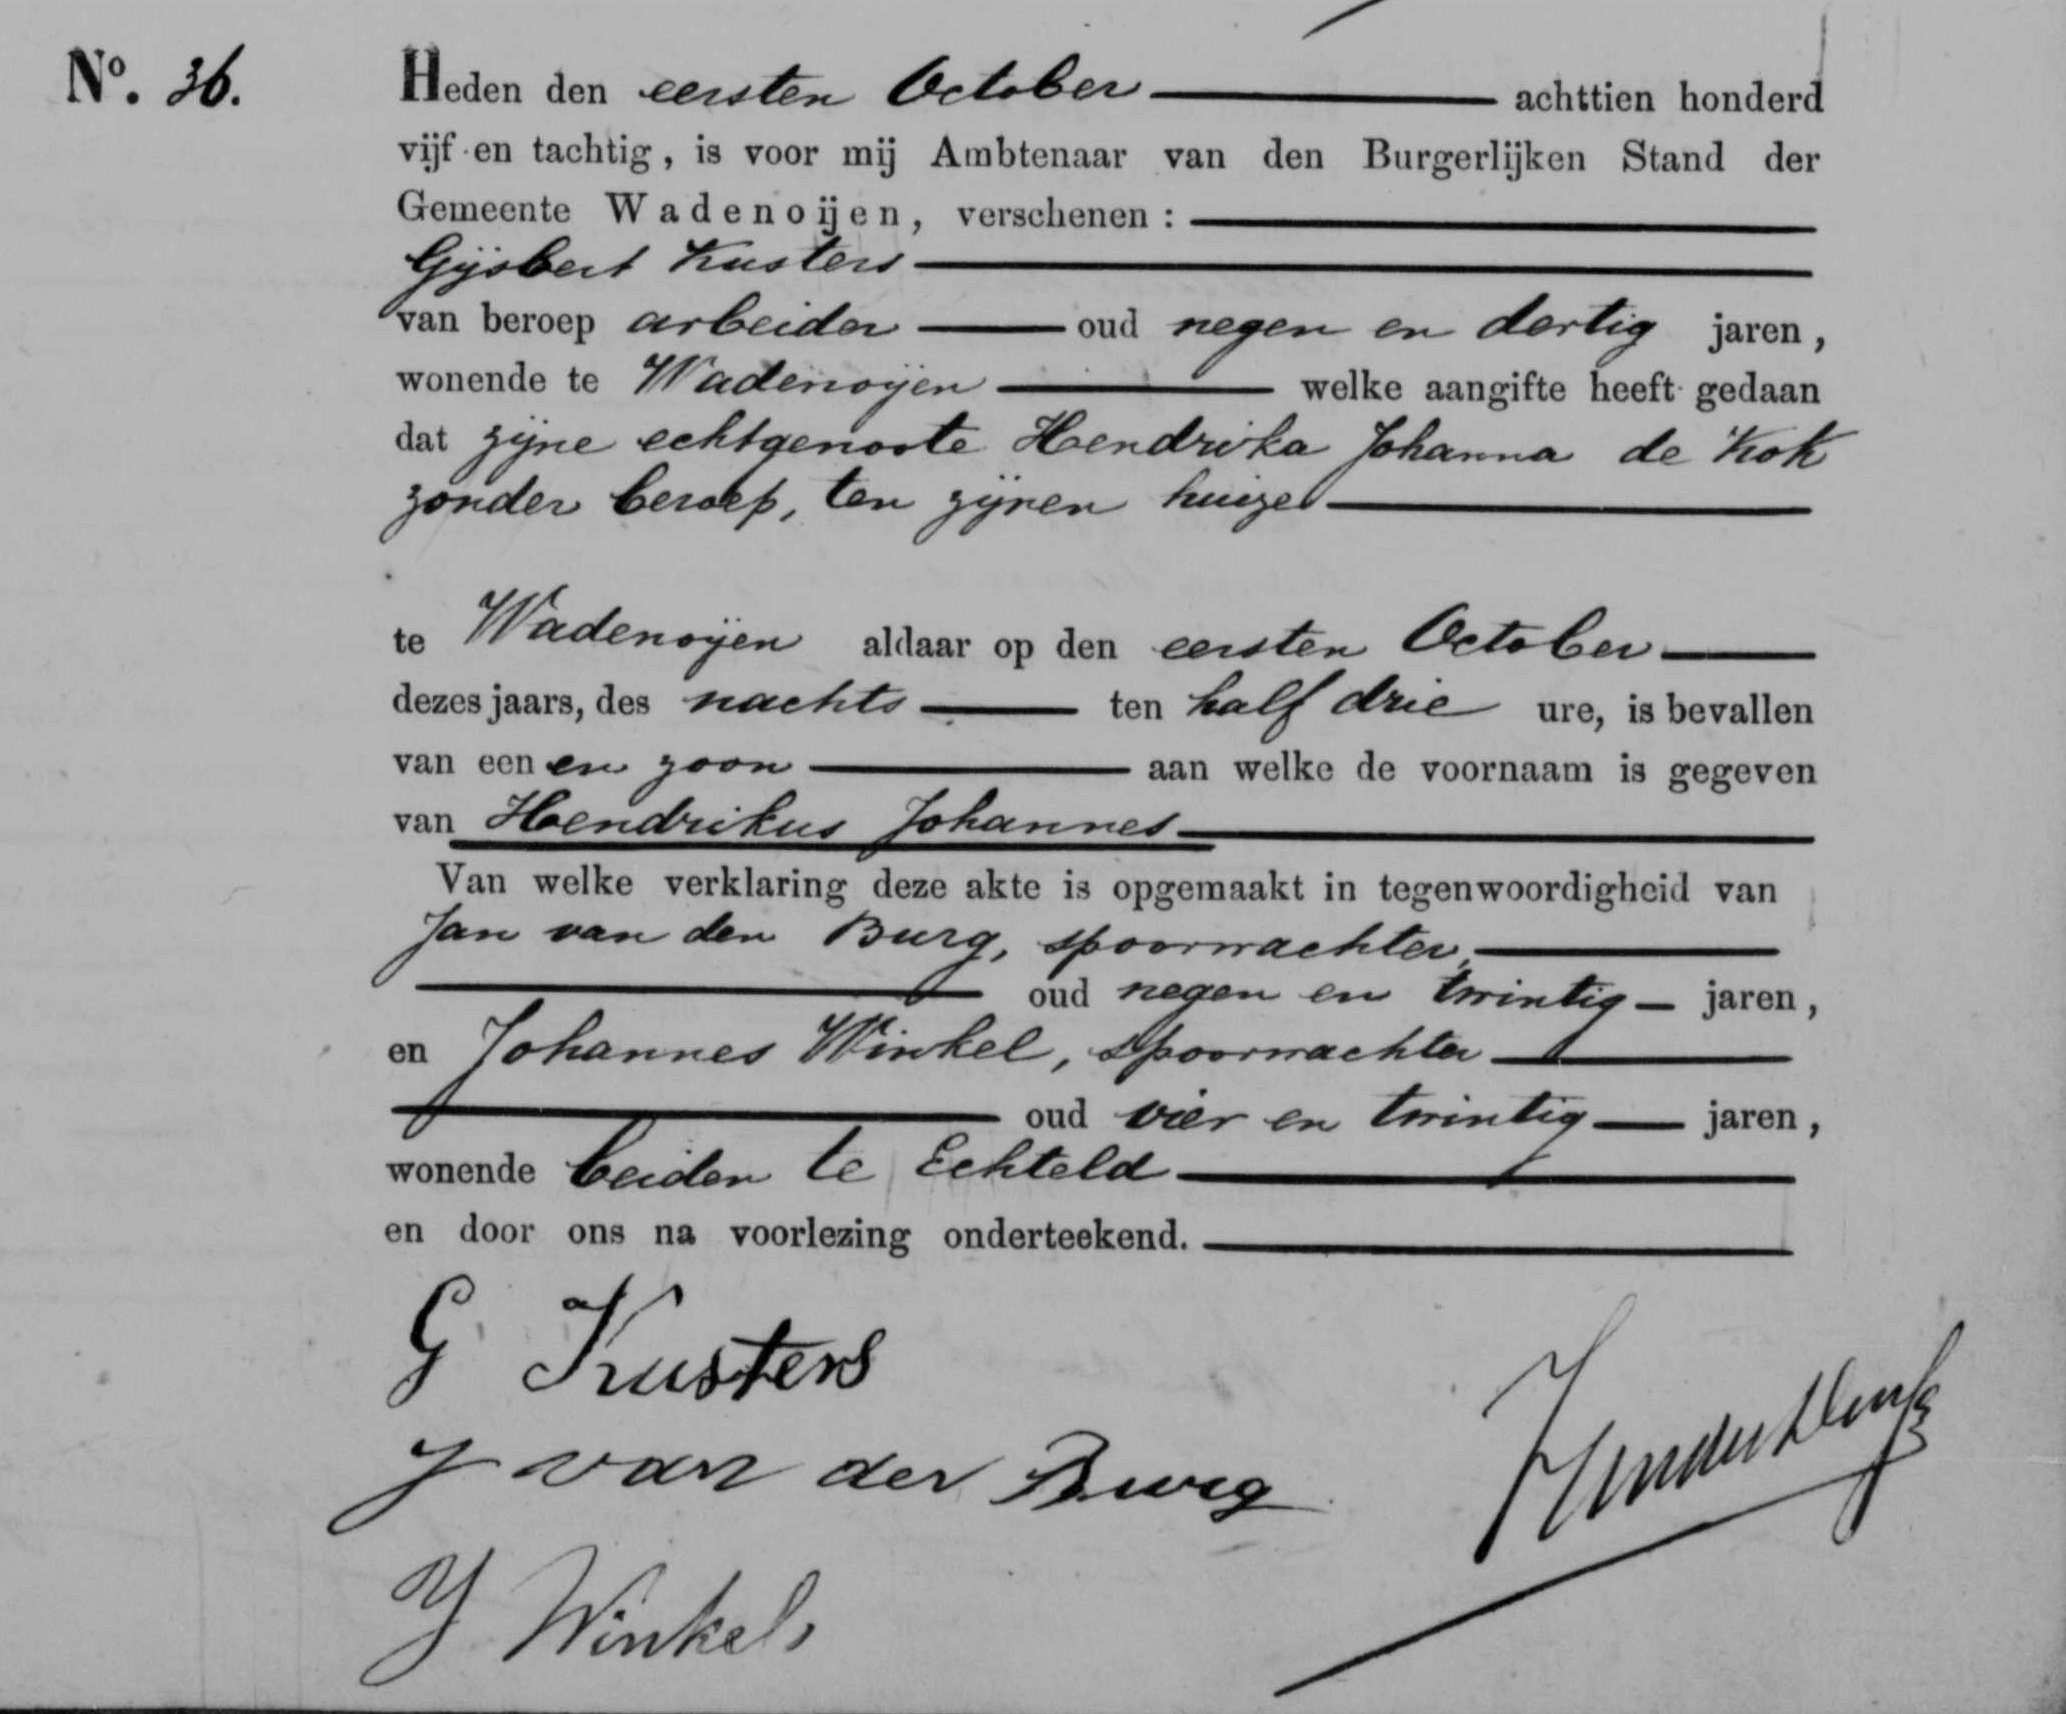 No. 36.
Heden den eersten October achttien honderd
vijf en tachtig, is voor mij Ambtenaar van den Burgerlijken Stand der
Gemeente Wadenoijen, verschenen :
Gijsbert Kusters
van beroep arbeider oud negen en dertig jaren,
wonende te Wadenoijen welke aangifte heeft gedaan
dat zijne echtgenoote Hendrika Johanna de Kok
zonder beroep, ten zijnen huize
te Wadenoijen aldaar op den eersten October
dezes jaars, des nachts ten half drie ure, is bevallen
van een en zoon aan welke de voornaam is gegeven
van Hendrikus Johannes
Van welke verklaring deze akte is opgemaakt in tegenwoordigheid van
Jan van den Burg, spoorwachter,
oud negen en twintig jaren,
en Johannes Winkel, spoorwachter
oud vier en twintig jaren,
wonende beiden te Echteld
en door ons na voorlezing onderteekend.
G Kusters
J van der Burg
J Winkel